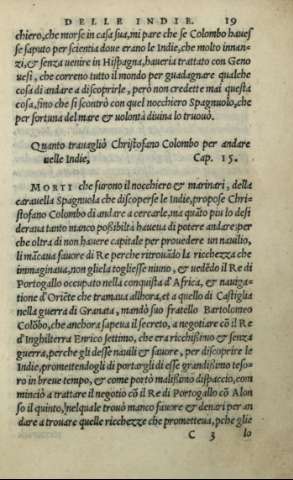 DELLE INDIE. 19
chiero, che morse in casa sua, mi pare che se Colombo hauess
se saputo per scientia doue erano le Indie, che molto innan-
zi, & senza uenire in Hispagna, haueria trattato con Geno
uesi, che correno tutto il mondo per guadagnare qualche
cosa di andare a discoprirle, però non credette mai questa
cosa, fino che si scontrò con quel nocchiero Spagnuolo, che
per fortuna del mare & uolontà diuina lo truouò.
Quanto trauagliò Christofano Colombo per andare
nelle Indie, Cap. 15.
MORTI che furono il nocchiero & marinari, della
carauella Spagnuola che discoperse le Indie, propose Chri-
stofano Colombo di andare a cercarle, ma quāto piu lo desi
deraua tanto manco possibiltà haueua di potere andare: per
che oltra di non hauere capitale per prouedere un nauilio,
li mācaua fauore di Re perche ritrouādo la ricchezza che
immaginaua, non gliela togliesse niuno, & uedēdo il Re di
Portogallo occupato nella conquista d'Africa, & nauiga-
tione d'Oriēte che tramaua allhora, et a quello di Castiglia
nella guerra di Granata, mandò suo fratello Bartolomeo
Colōbo, che anchora sapeua il secreto, a negotiare cō il Re
d'Inghilterra Enrico settimo, che era ricchißimo & senza
guerra, perche gli desse nauili & fauore, per discoprire le
Indie, promettendogli di portargli di esse grandißimo teso-
ro in breue tempo, & come portò malißimo dispaccio, com
minciò a trattare il negotio cō il Re di Portogallo cō Alon
so il quinto, nelquale trouò manco fauore & denari per an
dare a trouare quelle ricchezze che prometteua, pche glie
C 3 lo